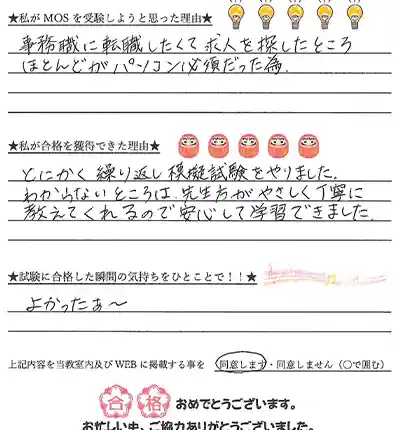 ★私が MOS を受験しようと思った理由★
事務職に転職したくて求人を探したところ
ほとんどがパソコン必須だった為.
★私が合格を獲得できた理由★
とにかく繰り返し模擬試験をやりました.
わからないところは、先生方がやさしく丁寧に
教えてくれるので安心して学習できました.
★試験に合格した瞬間の気持ちをひとことで！！★
よかったぁ〜
上記内容を当教室内及び WEB に掲載する事を 同意します・同意しません（○で囲む）
合格 おめでとうございます。
お忙しい中、ご協力ありがとうございました。